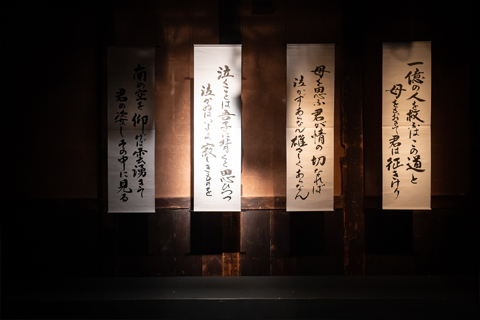 一億の人を救ふはこの道と
母をもおきて君は征きけり
母を思ふ君が情の切なれば
泣かずあらなん雄々しくあらなん
泣くことは吾子に背くと思ひつつ
泣かねばいよよ寂しきものを
南の空を仰げば雲湧きて
君の姿しその中に見る